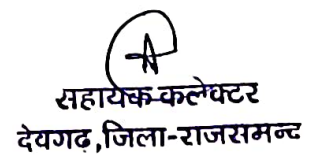 सहायक-कलेक्टर
देवगढ़,जिला-राजसमन्द